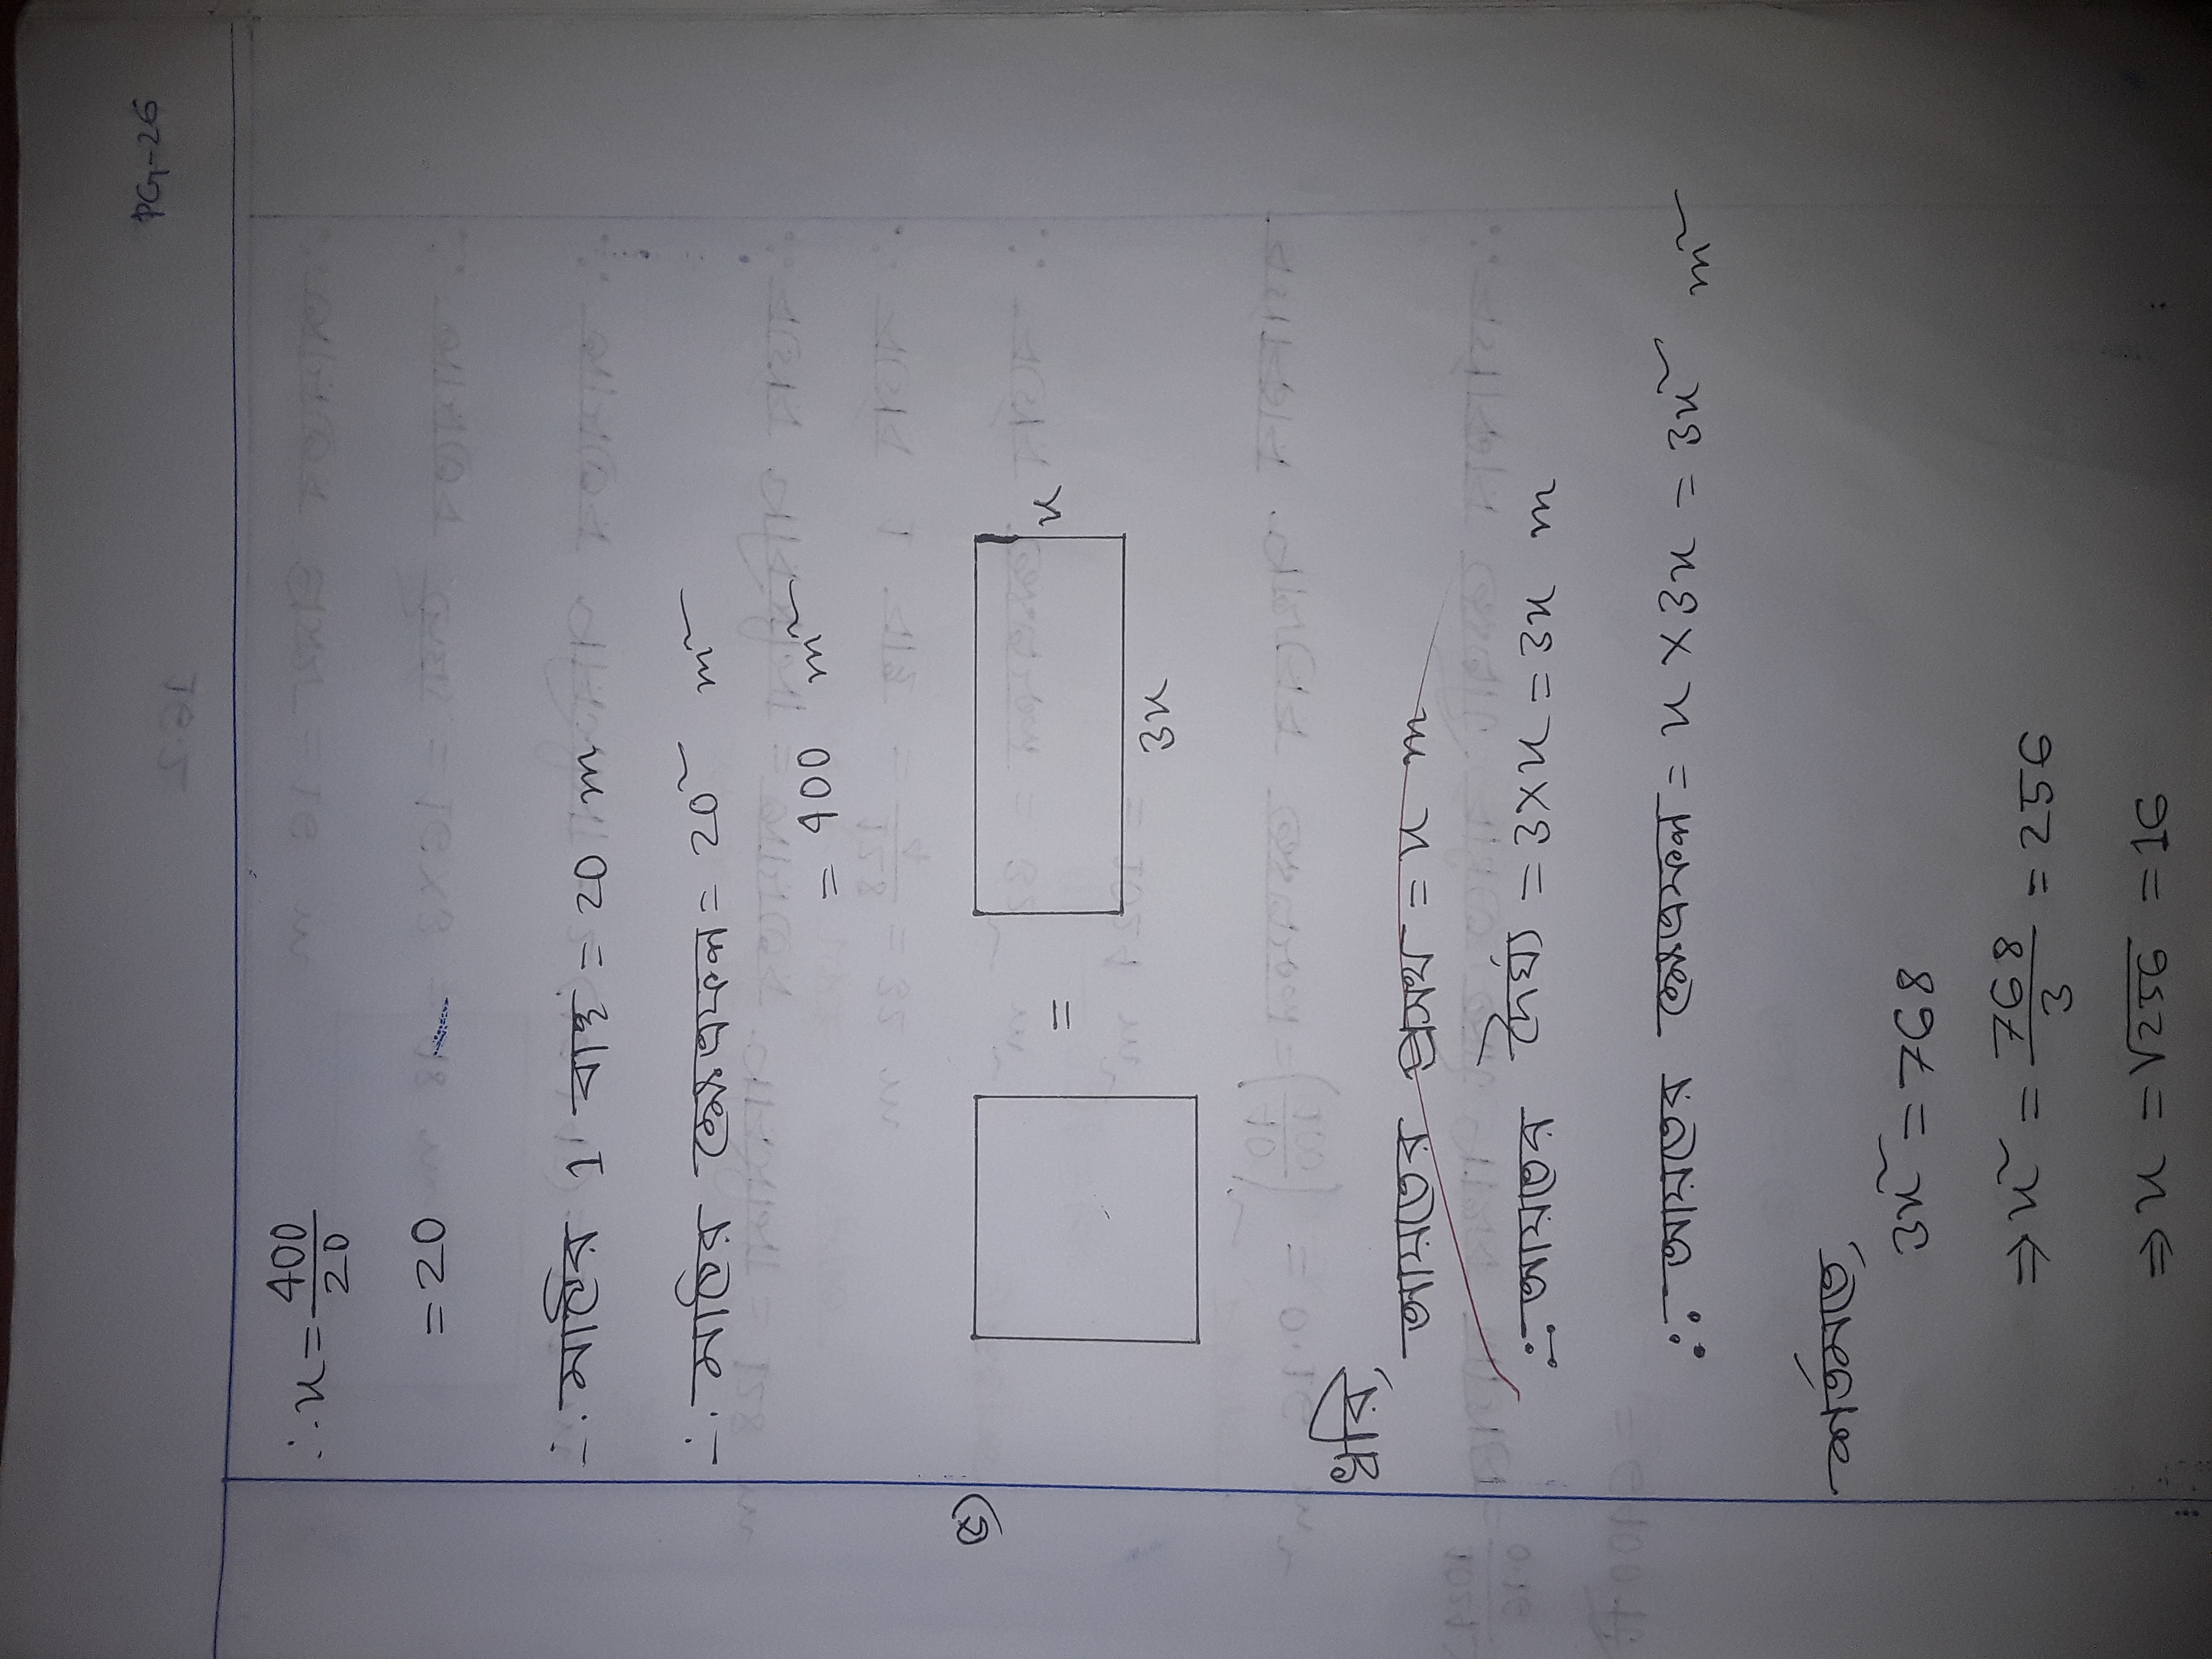 PG-26
∴ x = 400/20
= 20
∴ মাঠের 1 বাহু = 20 m
∴ মাঠের ক্ষেত্রফল = 20² m²
= 400 m²
৫)
=
x
3x
ধরি,
আয়তের প্রসথ = x m
∴ আয়তের দৈর্ঘ্য = 3×x = 3x m
∴ আয়তের ক্ষেত্রফল = x × 3x = 3x² m²
শর্তমতে,
3x² = 768
⇒ x² = 768/3 = 256
⇒ x = √256 = 16